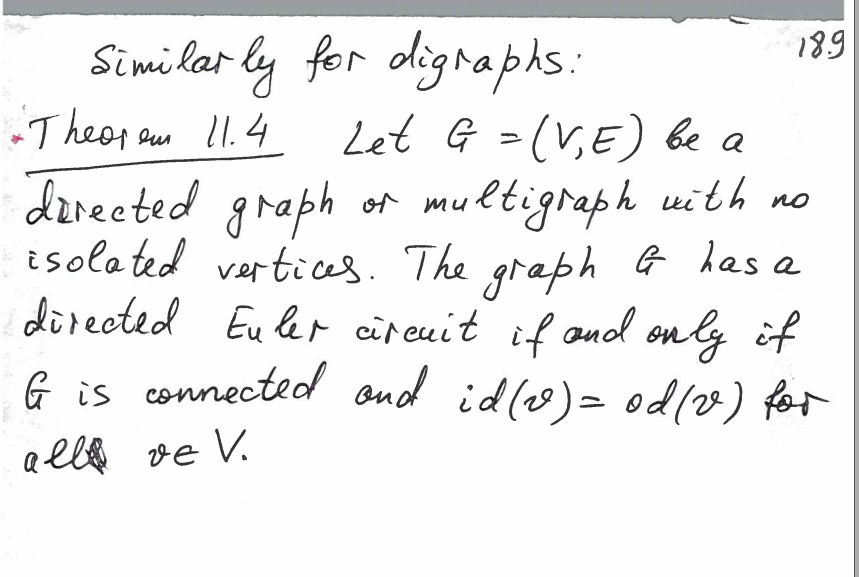 Similarly for digraphs:
189
* Theorem 11.4 Let G = (V,E) be a
directed graph or multigraph with no
isolated vertices. The graph G has a
directed Euler circuit if and only if
G is connected and id(v) = od(v) for
all v ∈ V.